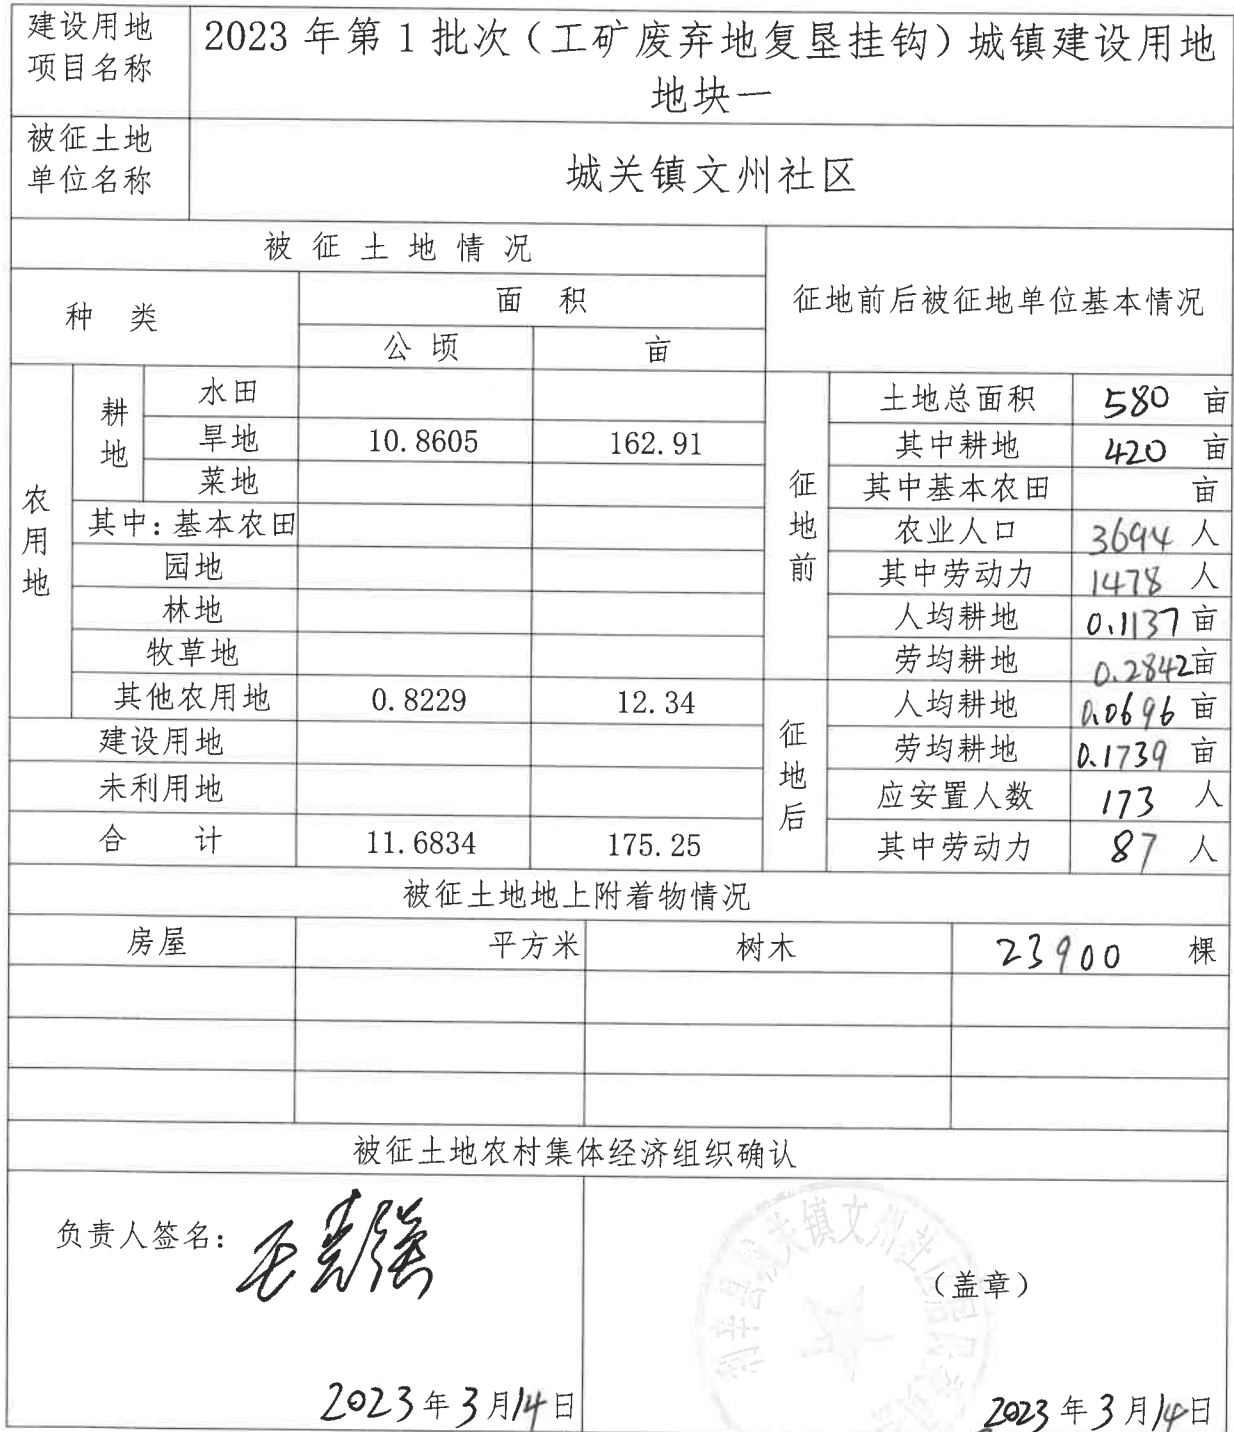 建设用地
项目名称
2023 年第 1 批次（工矿废弃地复垦挂钩）城镇建设用地
地块一
被征土地
单位名称
城关镇文州社区
被 征 土 地 情 况
征地前后被征地单位基本情况
种 类
面 积
公 顷
亩
农用地
耕地
水田
旱地 10.8605 162.91
菜地
其中：基本农田
园地
林地
牧草地
其他农用地 0.8229 12.34
建设用地
未利用地
合 计 11.6834 175.25
征地前
土地总面积 580 亩
其中耕地 420 亩
其中基本农田 亩
农业人口 3694 人
其中劳动力 1478 人
人均耕地 0.1137 亩
劳均耕地 0.2842 亩
征地后
人均耕地 0.0696 亩
劳均耕地 0.1739 亩
应安置人数 173 人
其中劳动力 87 人
被征土地地上附着物情况
房屋 平方米 树木 23900 棵
被征土地农村集体经济组织确认
负责人签名：
2023 年 3 月 14 日
城关镇文州社区居
（盖章）
2023 年 3 月 14 日